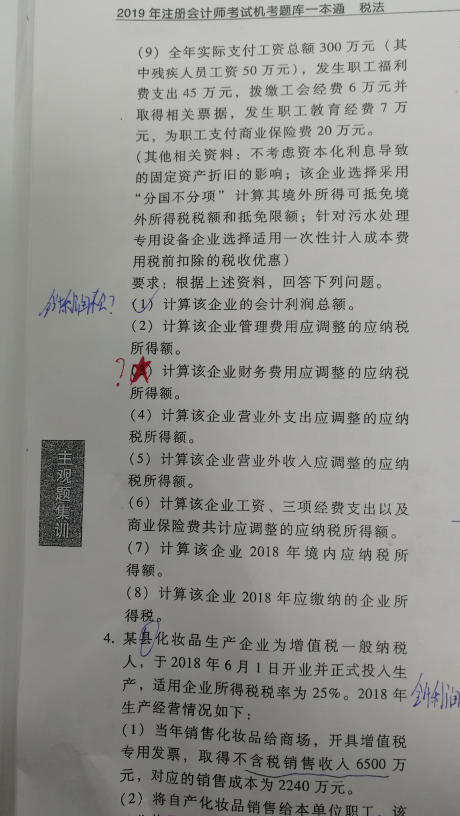 2019 年注册会计师考试机考题库一本通 税法
(9) 全年实际支付工资总额 300 万元 (其
中残疾人员工资 50 万元), 发生职工福利
费支出 45 万元, 拨缴工会经费 6 万元并
取得相关票据, 发生职工教育经费 7 万
元, 为职工支付商业保险费 20 万元。
(其他相关资料: 不考虑资本化利息导致
的固定资产折旧的影响; 该企业选择采用
“分国不分项” 计算其境外所得可抵免境
外所得税税额和抵免限额; 针对污水处理
专用设备企业选择适用一次性计入成本费
用税前扣除的税收优惠)
要求: 根据上述资料, 回答下列问题。
(1) 计算该企业的会计利润总额。
(2) 计算该企业管理费用应调整的应纳税
所得额。
? 计算该企业财务费用应调整的应纳税
所得额。
(4) 计算该企业营业外支出应调整的应纳
税所得额。
(5) 计算该企业营业外收入应调整的应纳
税所得额。
(6) 计算该企业工资、三项经费支出以及
商业保险费共计应调整的应纳税所得额。
(7) 计算该企业 2018 年境内应纳税所
得额。
(8) 计算该企业 2018 年应缴纳的企业所
得税。
主观题集训
4. 某县化妆品生产企业为增值税一般纳税
人, 于 2018 年 6 月 1 日开业并正式投入生
产, 适用企业所得税税率为 25%。2018 年
生产经营情况如下:
(1) 当年销售化妆品给商场, 开具增值税
专用发票, 取得不含税销售收入 6500 万
元, 对应的销售成本为 2240 万元。
(2) 将自产化妆品销售给本单位职工, 该